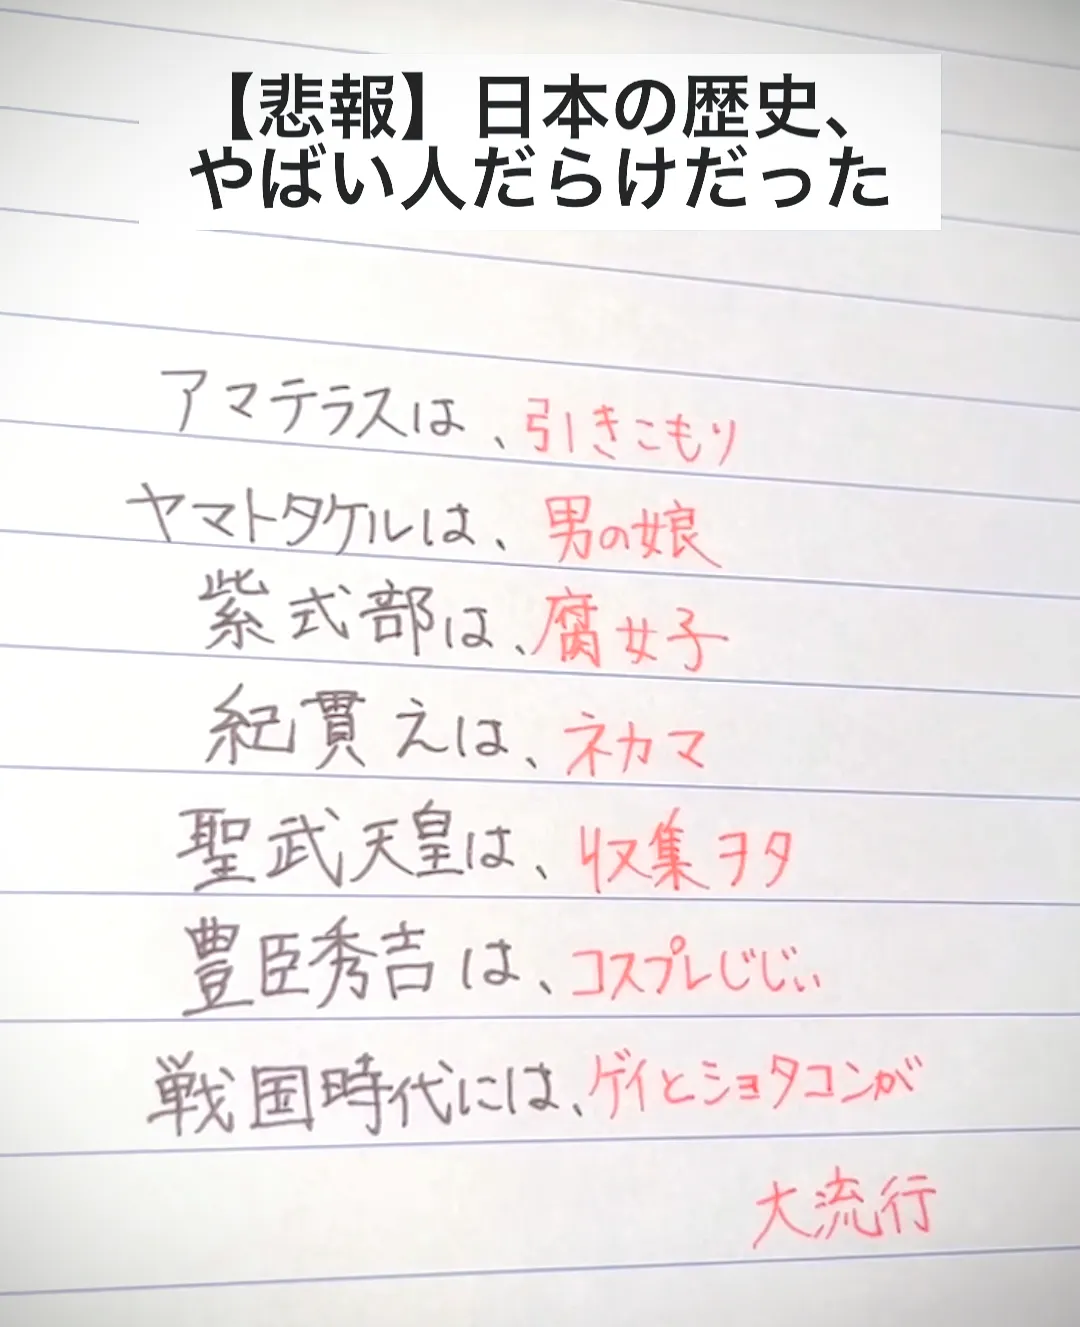 【悲報】日本の歴史、
やばい人だらけだった
アマテラスは、引きこもり
ヤマトタケルは、男の娘
紫式部は、腐女子
紀貫えは、ネカマ
聖武天皇は、収集ヲタ
豊臣秀吉は、コスプレじじぃ
戦国時代には、ゲイとショタコンが
大流行